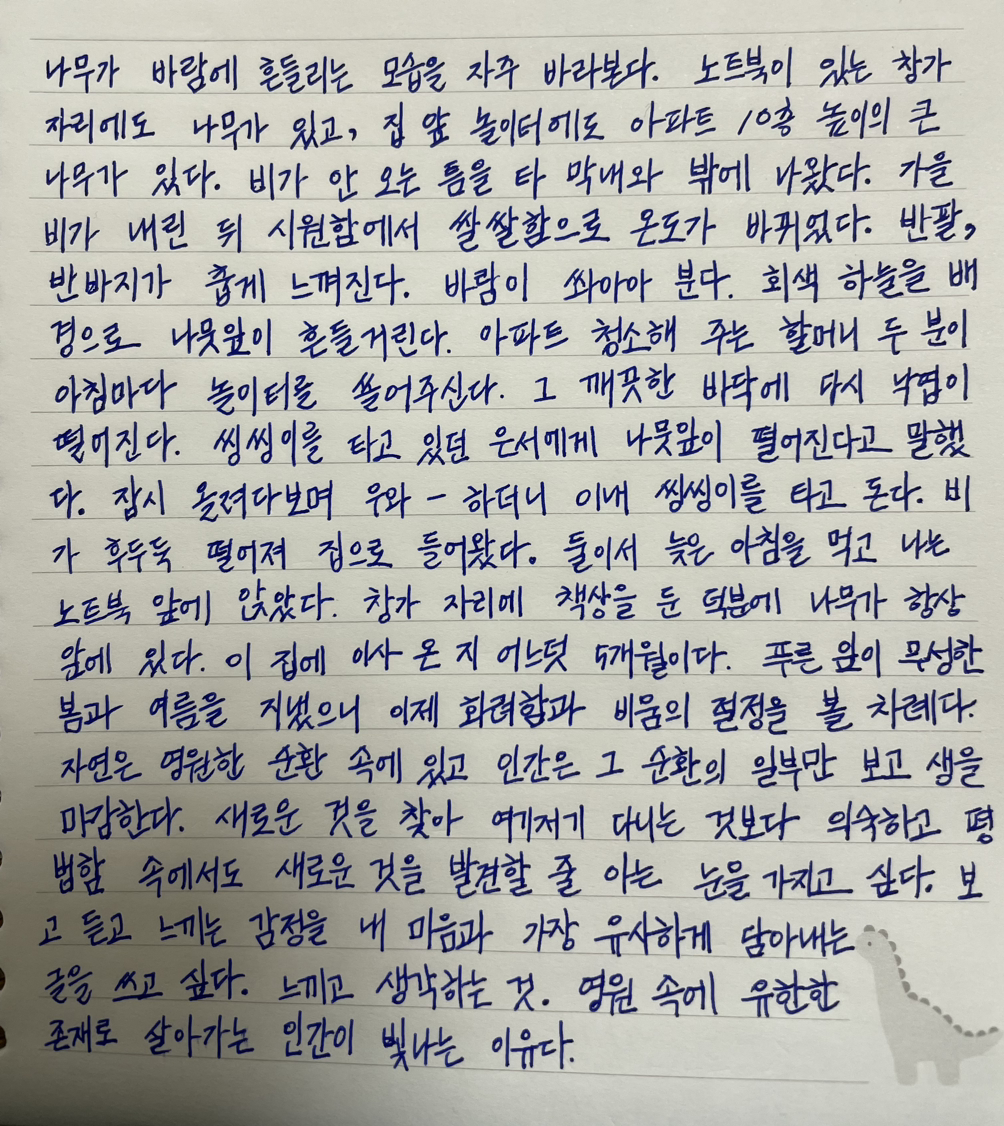 나무가 바람에 흔들리는 모습을 자주 바라본다. 노트북이 있는 창가
자리에도 나무가 있고, 집 앞 놀이터에도 아파트 10층 높이의 큰
나무가 있다. 비가 안 오는 틈을 타 막내와 밖에 나왔다. 가을
비가 내린 뒤 시원함에서 쌀쌀함으로 온도가 바뀌었다. 반팔,
반바지가 춥게 느껴진다. 바람이 쏴아아 분다. 회색 하늘을 배
경으로 나뭇잎이 흔들거린다. 아파트 청소해 주는 할머니 두 분이
아침마다 놀이터를 쓸어주신다. 그 깨끗한 바닥에 다시 낙엽이
떨어진다. 씽씽이를 타고 있던 은서에게 나뭇잎이 떨어진다고 말했
다. 잠시 올려다보며 우와 - 하더니 이내 씽씽이를 타고 돈다. 비
가 후두둑 떨어져 집으로 들어왔다. 둘이서 늦은 아침을 먹고 나는
노트북 앞에 앉았다. 창가 자리에 책상을 둔 덕분에 나무가 항상
앞에 있다. 이 집에 이사 온 지 어느덧 5개월이다. 푸른 잎이 무성한
봄과 여름을 지냈으니 이제 화려함과 비움의 절정을 볼 차례다.
자연은 영원한 순환 속에 있고 인간은 그 순환의 일부만 보고 생을
마감한다. 새로운 것을 찾아 여기저기 다니는 것보다 익숙하고 평
범함 속에서도 새로운 것을 발견할 줄 아는 눈을 가지고 싶다. 보
고 듣고 느끼는 감정을 내 마음과 가장 유사하게 담아내는
글을 쓰고 싶다. 느끼고 생각하는 것. 영원 속에 유한한
존재로 살아가는 인간이 빛나는 이유다.